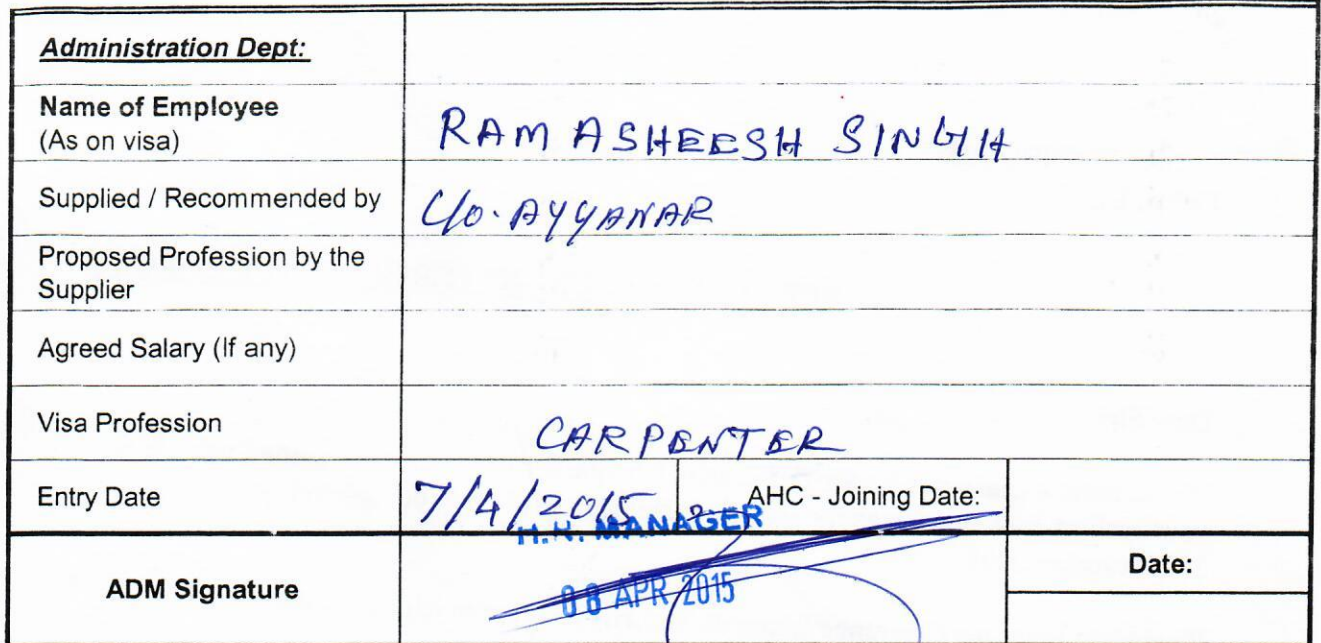 Administration Dept:
Name of Employee
(As on visa)
RAM ASHEESH SINGH
Supplied / Recommended by
C/O. AYYANAR
Proposed Profession by the
Supplier
Agreed Salary (If any)
Visa Profession
CARPENTER
Entry Date
7/4/2015
AHC - Joining Date:
H.R. MANAGER
ADM Signature
08 APR 2015
Date: